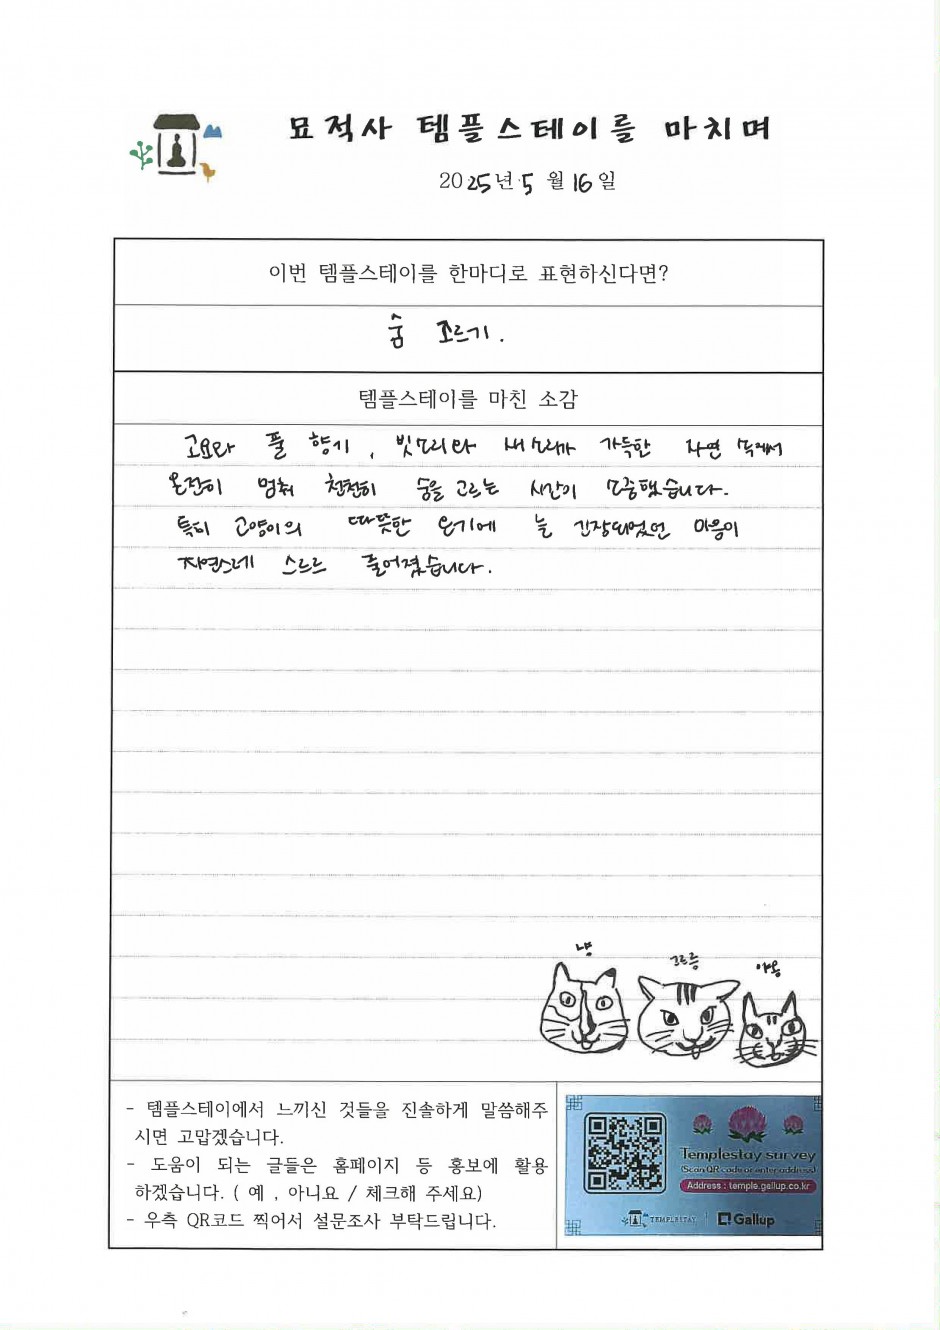 묘적사 템플스테이를 마치며
2025년 5월 16일
이번 템플스테이를 한마디로 표현하신다면?
숨 고르기.
템플스테이를 마친 소감
고요와 풀 향기, 빗소리와 새소리가 가득한 자연 속에서
온전히 멈춰 천천히 숨을 고르는 시간이 소중했습니다.
특히 고양이의 따뜻한 온기에 늘 긴장되었던 마음이
자연스레 스르르 풀어졌습니다.
냥 고르릉 야옹
- 템플스테이에서 느끼신 것들을 진솔하게 말씀해주
시면 고맙겠습니다.
- 도움이 되는 글들은 홈페이지 등 홍보에 활용
하겠습니다. ( 예 , 아니요 / 체크해 주세요)
- 우측 QR코드 찍어서 설문조사 부탁드립니다.
Templestay survey
(Scan QR code or enter address)
Address : temple.gallup.co.kr
TEMPLESTAY Gallup